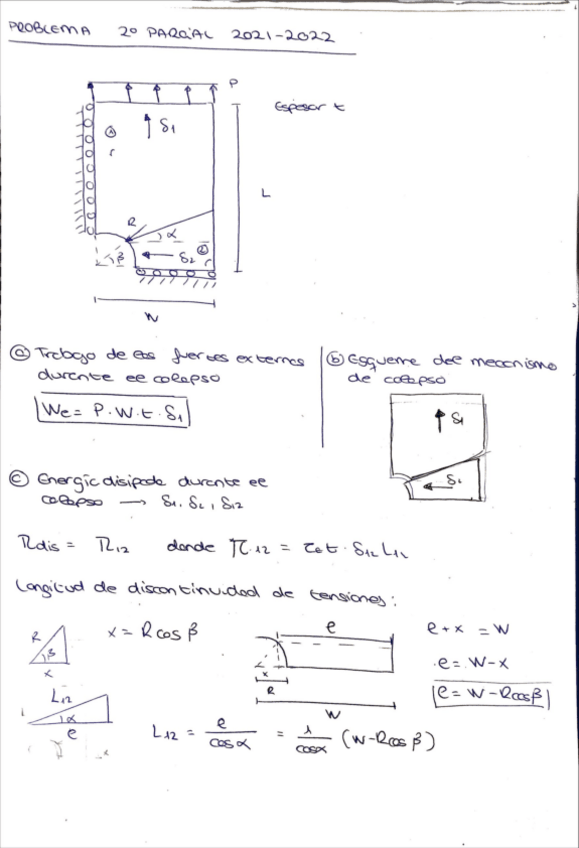 PROBLEMA 2º PARCIAL 2021-2022
P
Espesor t
δ1
1
r
L
R
α
β
δ2
2
r
W
ⓐ Trabajo de las fuerzas externas
durante el colapso
We = P·W·t·δ1
ⓑ Esquema del mecanismo
de colapso
δ1
δ2
ⓒ Energía disipada durante el
colapso → δ1, δ2, δ12
Πdis = Π12 donde Π12 = τ0 t · δ12 L12
Longitud de discontinuidad de tensiones:
R
β
x
x = R cos β
e
x
R
W
e + x = W
e = W - x
e = W - R cos β
L12
α
e
L12 = e / cos α = 1 / cos α (W - R cos β)